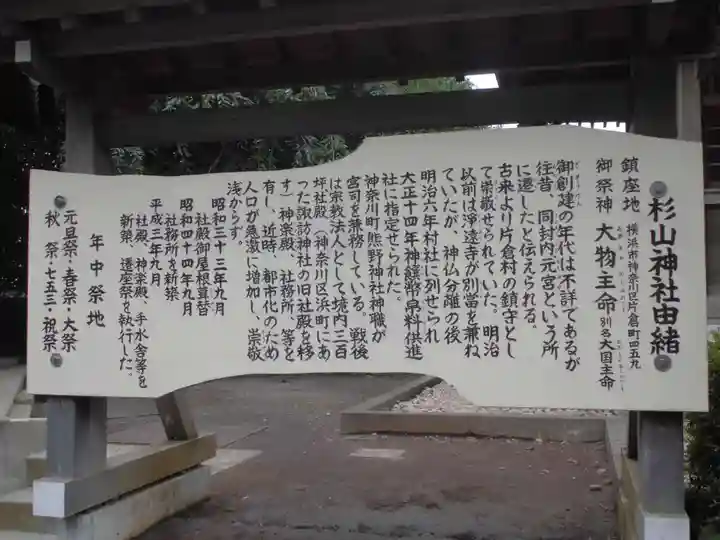 杉山神社由緒
鎮座地 横浜市神奈川区片倉町四五九
御祭神 大物主命 別名大国主命
御創建の年代は不詳であるが
往昔、同封内元宮という所
に遷したと伝えられる。
古来より片倉村の鎮守とし
て崇敬せられていた。明治
以前は淨遠寺が別當を兼ね
ていたが、神仏分離の後
明治六年村社に列せられ
大正十四年神饌幣帛料供進
社に指定せられた。
神奈川町熊野神社神職が
宮司を兼務している。戦後
は宗教法人として境内三百
坪社殿（神奈川区浜町にあ
った諏訪神社の旧社殿を移
す）神楽殿、社務所、等を
有し、近時、都市化のため
人口が急激に増加し、崇敬
浅からず。
昭和三十三年九月
社殿御屋根葺替
昭和四十四年九月
社務所を新築
平成三年九月
社殿、神楽殿、手水舎等を
新築、遷座祭を執行した。
年中祭地
元旦祭・春祭・大祭
秋祭・七五三・祝祭